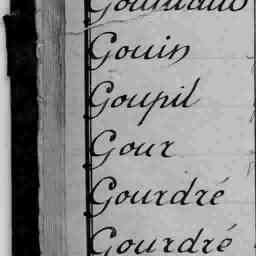 Gouin
Goupil
Gour
Gourdré
Gourdré